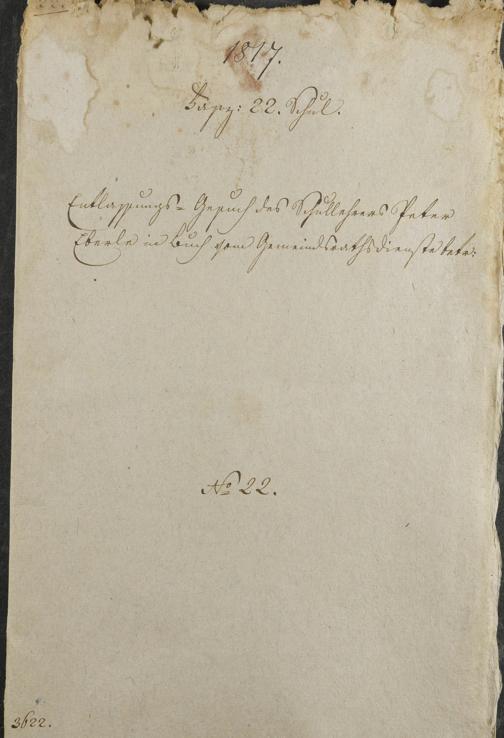 1817.
Fasz: 22. Schul.
Entlassungs- Gesuch des Schullehrers Peter
Eberle in Buch vom Gemeindsrathsdienste betr:
No 22.
3622.